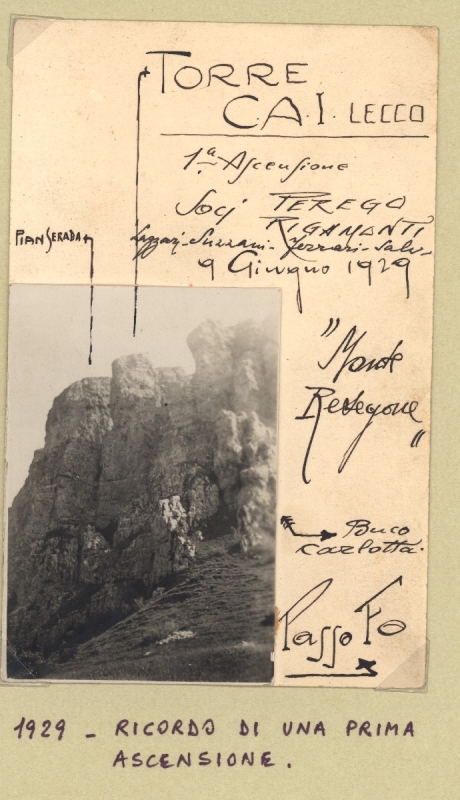 TORRE
C.A.I. LECCO
1ª Ascensione
Socj PEREGO
RIGAMONTI
PIAN SERADA
9 Giugno 1929
"Monte
Resegone"
Buco
Carlotta.
Passo Fo
1929 - RICORDO DI UNA PRIMA
ASCENSIONE.